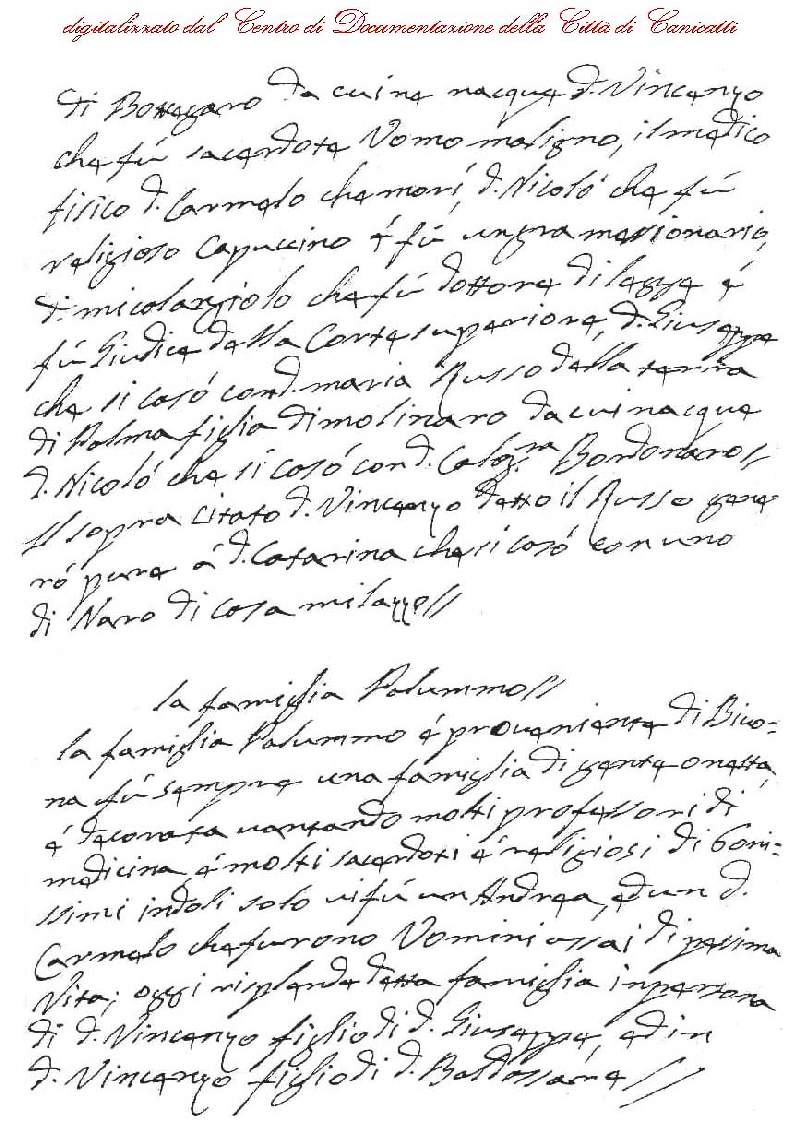 digitalizzato dal Centro di Documentazione della Città di Canicattì
di Bottegaro da cui ne nacque d. Vincenzo
che fú sacerdote Vomo maligno, il medico
fisico d. Carmelo che morí, d. Nicoló che fú
religioso Capuccino é fú un gra mesionario,
d. micolangiolo che fú dottore di legge é
fú Giudice della Corte superiore, d. Giuseppe
che si casó con d. maria Russo della terra
di Palma figlia di molinaro da cui nacque
d. Nicoló che si casó con d. Calog.ra Bordonaro//
Il sopra citato d. Vincenzo detto il Russo gene
ró pure á d. Catarina che si casó con uno
di Naro di casa milazzo//
la famiglia Palummo//
la famiglia Palummo é proveniente di Bivo=
na fú sempre una famiglia di gente onesta,
é decorata vantando molti professori di
medicina é molti sacerdoti é religiosi di boni=
ssimi indoli solo vi fú un Andrea, ed un d.
Carmelo che furono Vomini assai di pessima
Vita; oggi risplende detta famiglia in persona
di d. Vincenzo figlio di d. Giuseppe, ed in
d. Vincenzo figlio di d. Baldassare//